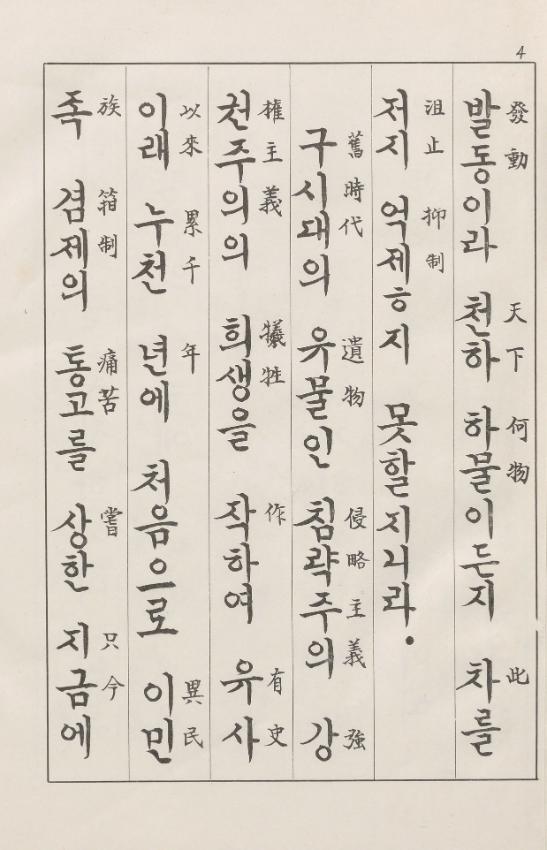 4
발동이라 천하 하물이든지 차를
發動 天下 何物 此
저지 억제ㅎ지 못할지니라.
沮止 抑制
구시대의 유물인 침략주의 강
舊時代 遺物 侵略主義 強
권주의의 희생을 작하여 유사
權主義 犧牲 作 有史
이래 누천 년에 처음으로 이민
以來 累千 年 異民
족 겸제의 통고를 상한 지금에
族 箝制 痛苦 嘗 只今